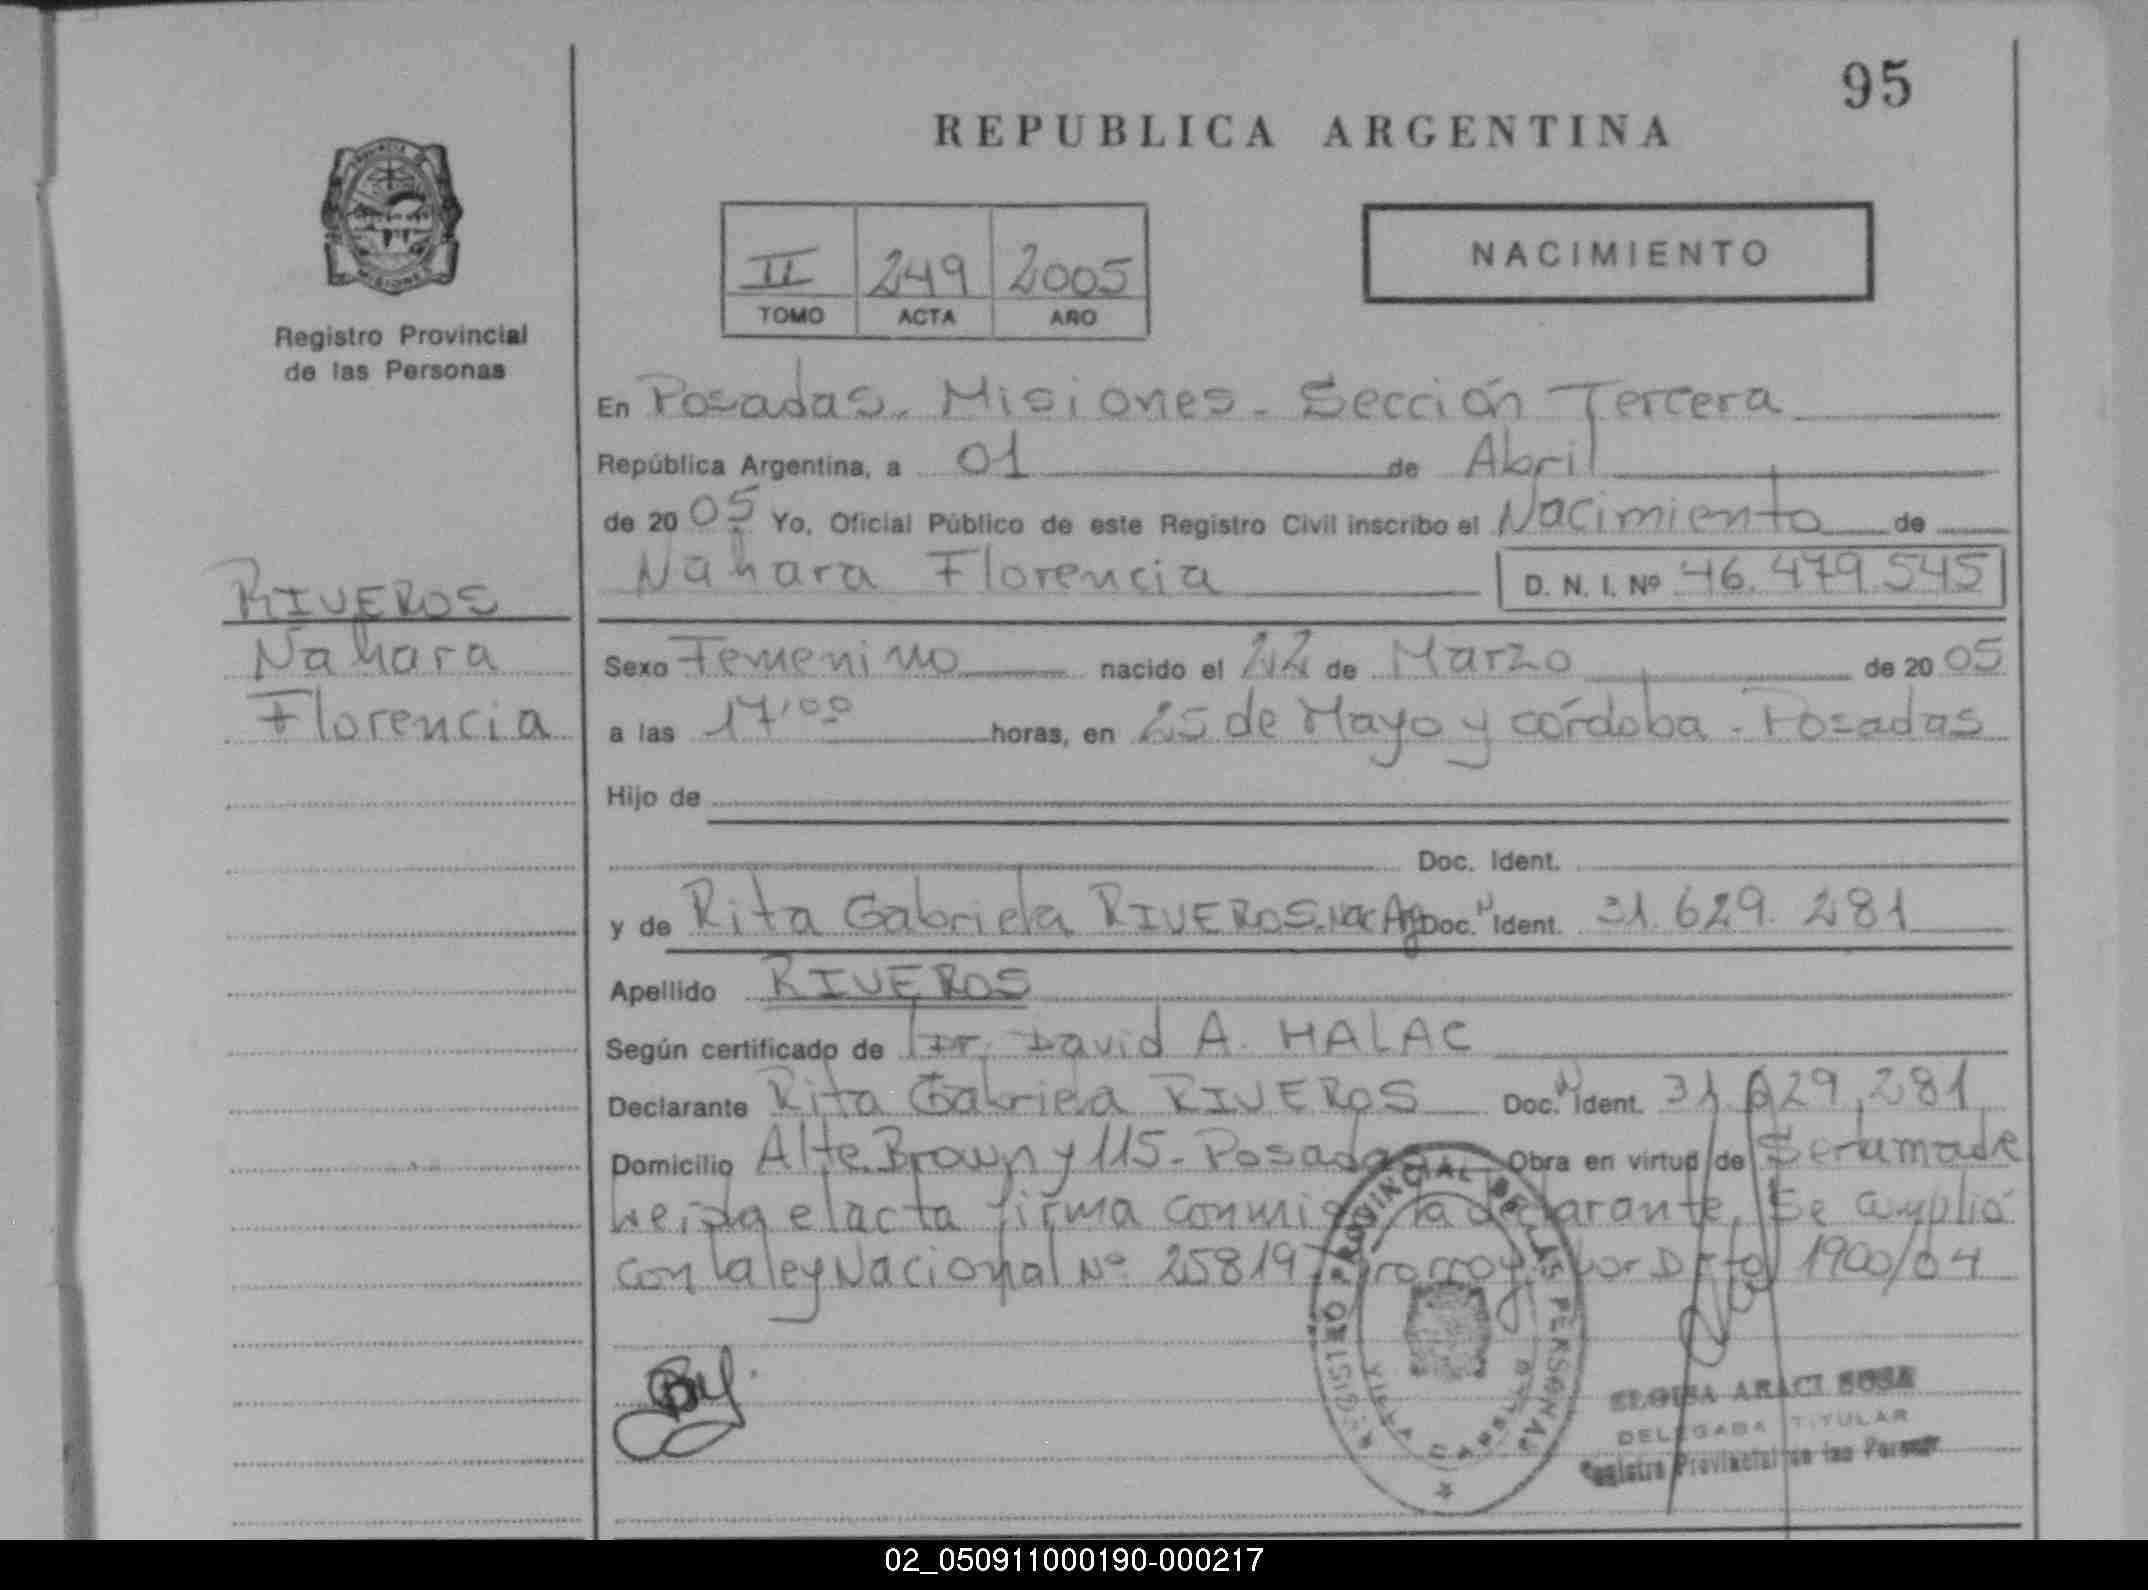 95
REPUBLICA ARGENTINA
II 249 2005
TOMO ACTA AÑO
NACIMIENTO
Registro Provincial
de las Personas
En Posadas. Misiones - Sección Tercera
República Argentina, a 01 de Abril
de 2005 Yo, Oficial Público de este Registro Civil inscribo el Nacimiento de
Nahara Florencia D. N. I. Nº 46.479.545
RIVEROS
Nahara
Florencia
Sexo Femenino nacido el 22 de Marzo de 2005
a las 17,00 horas, en 25 de Mayo y córdoba - Posadas
Hijo de
Doc. Ident.
y de Rita Gabriela RIVEROS. Nac Ag Doc. N Ident. 31.629.281
Apellido RIVEROS
Según certificado de Dr. David A. HALAC
Declarante Rita Gabriela RIVEROS Doc. N Ident. 31.629.281
Domicilio Alte. Brown y 115 - Posadas Obra en virtud de
leida el acta firma conmigo la declarante, Se amplió
con la ley Nacional Nº 25819 por Dto 1900/04
REGISTRO PROVINCIAL DE LAS PERSONAS
VILLA CABELLO
ELOISA ARACI SOSA
DELEGADA TITULAR
Registro Provincial de las Personas
02_050911000190-000217